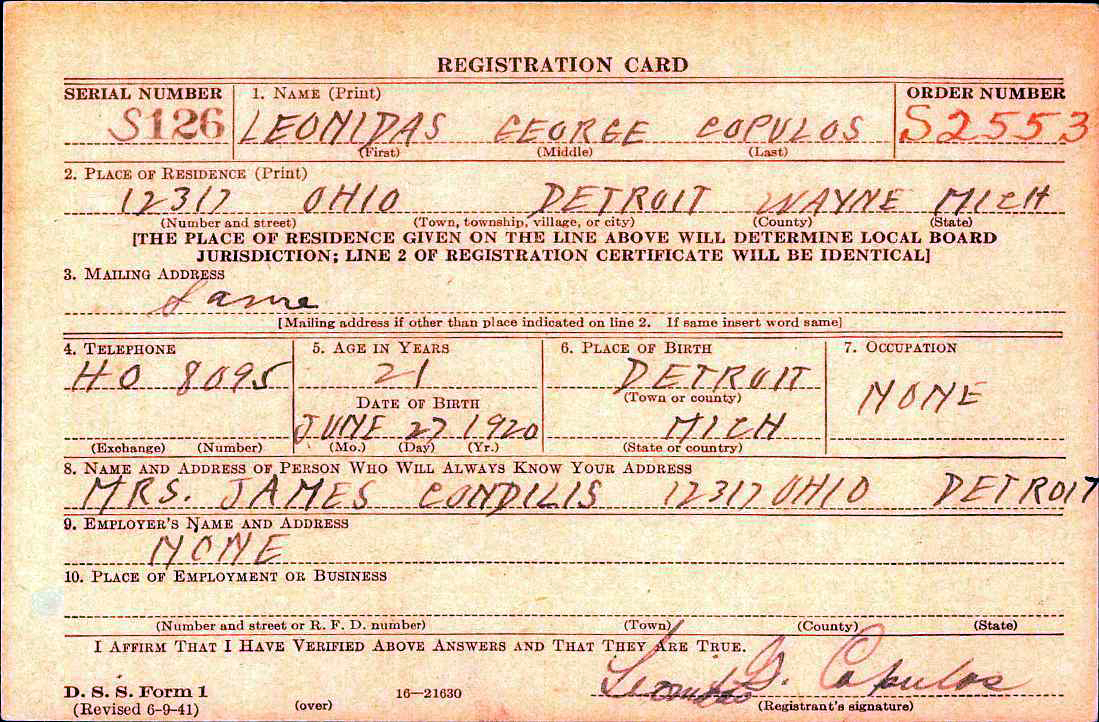 REGISTRATION CARD
SERIAL NUMBER 1. NAME (Print) ORDER NUMBER
S126 LEONIDAS GEORGE COPULOS S2553
(First) (Middle) (Last)
2. PLACE OF RESIDENCE (Print)
12317 OHIO DETROIT WAYNE MICH
(Number and street) (Town, township, village, or city) (County) (State)
[THE PLACE OF RESIDENCE GIVEN ON THE LINE ABOVE WILL DETERMINE LOCAL BOARD
JURISDICTION; LINE 2 OF REGISTRATION CERTIFICATE WILL BE IDENTICAL]
3. MAILING ADDRESS
Same
[Mailing address if other than place indicated on line 2. If same insert word same]
4. TELEPHONE 5. AGE IN YEARS 6. PLACE OF BIRTH 7. OCCUPATION
HO 8095 21 DETROIT NONE
(Town or county)
DATE OF BIRTH
JUNE 27 1920 MICH
(Exchange) (Number) (Mo.) (Day) (Yr.) (State or country)
8. NAME AND ADDRESS OF PERSON WHO WILL ALWAYS KNOW YOUR ADDRESS
MRS. JAMES CONDILIS 12317 OHIO DETROIT
9. EMPLOYER'S NAME AND ADDRESS
NONE
10. PLACE OF EMPLOYMENT OR BUSINESS
(Number and street or R. F. D. number) (Town) (County) (State)
I AFFIRM THAT I HAVE VERIFIED ABOVE ANSWERS AND THAT THEY ARE TRUE.
Leonidas G. Copulos
D. S. S. Form 1 16—21630
(Revised 6-9-41) (over) (Registrant's signature)